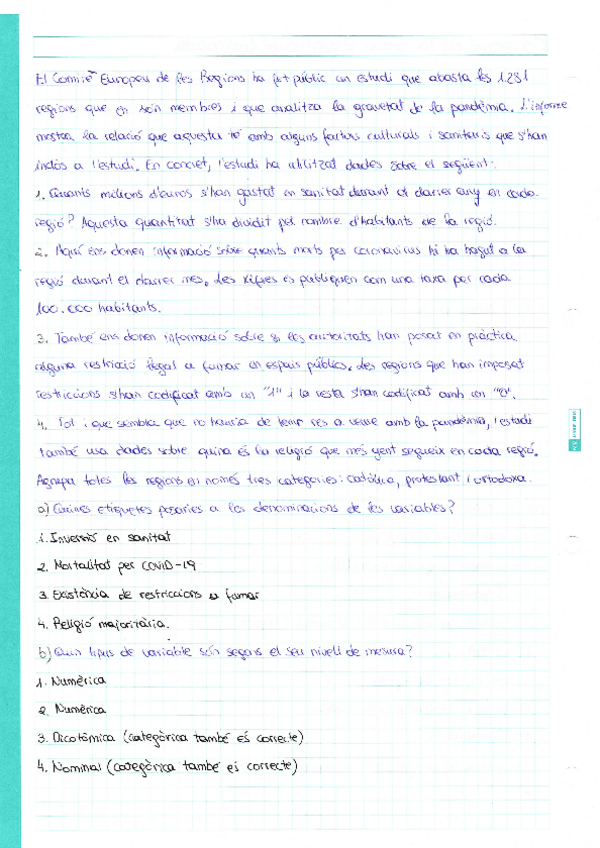 El Comitè Europeu de les Regions ha fet públic un estudi que abasta les 1.281
regions que en són membres i que analitza la gravetat de la pandèmia. L'informe
mostra la relació que aquesta té amb alguns factors culturals i sanitaris que s'han
inclòs a l'estudi. En concret, l'estudi ha utilitzat dades sobre el següent:
1. Quants milions d'euros s'han gastat en sanitat durant el darrer any en cada
regió? Aquesta quantitat s'ha dividit pel nombre d'habitants de la regió.
2. Aquí ens donen informació sobre quants morts per coronavirus hi ha hagut a la
regió durant el darrer mes. Les xifres es publiquen com una taxa per cada
100.000 habitants.
3. També ens donen informació sobre si les autoritats han posat en pràctica
alguna restricció legal a fumar en espais públics. Les regions que han imposat
restriccions s'han codificat amb un "1" i la resta s'han codificat amb un "0".
4. Tot i que sembla que no hauria de tenir res a veure amb la pandèmia, l'estudi
també usa dades sobre quina és la religió que més gent segueix en cada regió.
Agrupa totes les regions en només tres categories: catòlica, protestant i ortodoxa.
a) Quines etiquetes posaries a les denominacions de les variables?
1. Inversió en sanitat
2. Mortalitat per COVID-19
3. Existència de restriccions a fumar
4. Religió majoritària.
b) Quin tipus de variable són segons el seu nivell de mesura?
1. Numèrica
2. Numèrica
3. Dicotòmica (categòrica també és correcte)
4. Nominal (categòrica també és correcte)